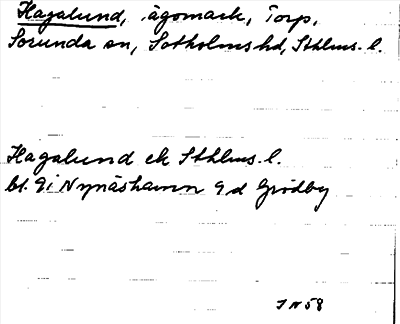 Hagalund, ägomark, Torp,
Sorunda sn, Sotholms hd, Sthlms. l.
Hagalund ek Sthlms. l.
bl. 9i Nynäshamn 9d Grödby
I N 58